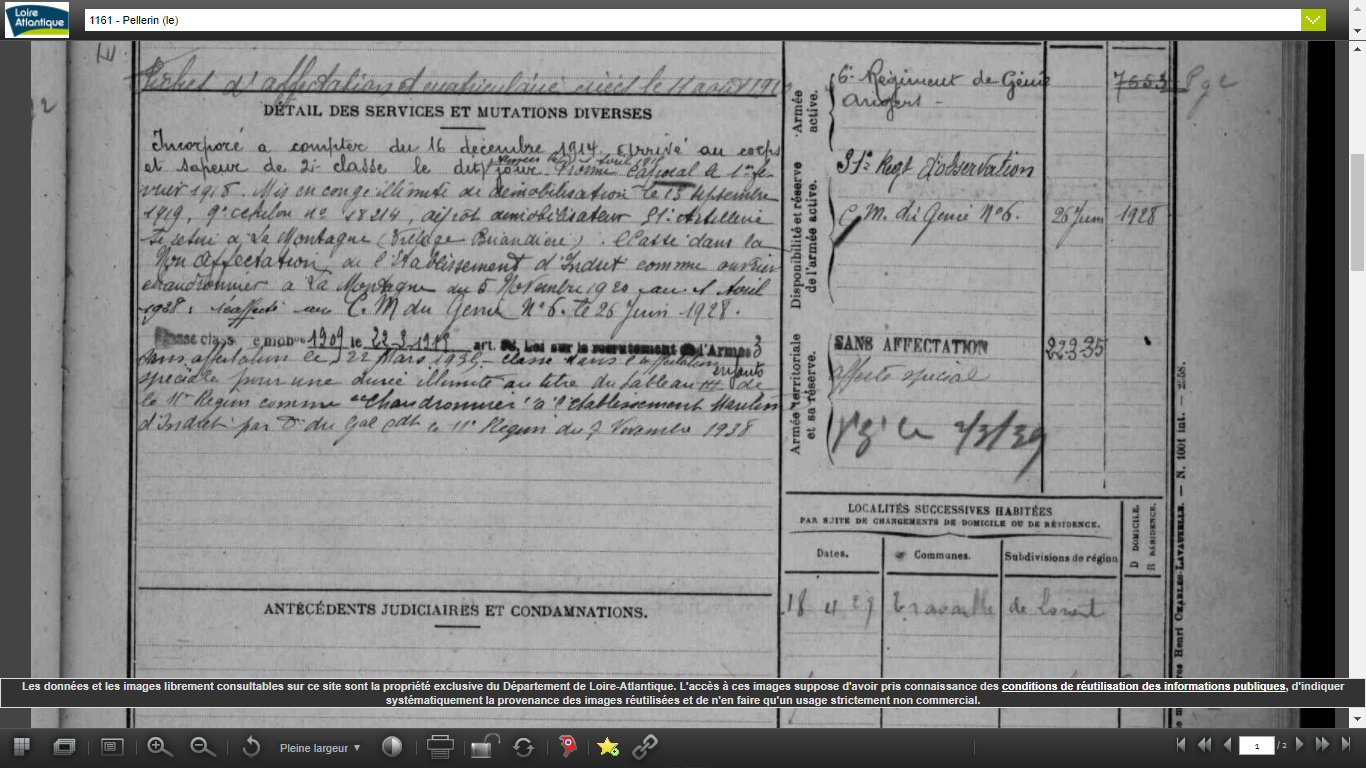 Loire
Atlantique
1161 - Pellerin (le)
d'affectation et matriculaire le 11 août
DÉTAIL DES SERVICES ET MUTATIONS DIVERSES
Incorporé à compter du 16 décembre 1914. Arrivé au corps
et sapeur de 2e classe le dit jour. Nommé Caporal le 1er fé-
vrier 1918. Mis en congé illimité de démobilisation le 13 septembre
1919, 9e échelon no 18214, dépôt démobilisateur 51e Artillerie
Se retire à La Montagne (Village Briandière). Classé dans la
Non Affectation de l'Etablissement d'Indret comme ouvrier
chaudronnier à La Montagne du 5 Novembre 1920 au 1 Avril
1928. réaffecté au C. M du Génie No 6. le 26 Juin 1928.
classe mobon 1909 le 22-3-1919 art. Loi sur le recrutement de l'Armée 3
enfants
Sans affectation le 22 Mars 1935. classé dans l'affectation
spéciale pour une durée illimitée au titre du tableau III de
la 11e Région comme "Chaudronnier" à l'établissement
d'Indret par Don du Gal Cdt la 11e Région du 7 Novembre 1938
ANTÉCÉDENTS JUDICIAIRES ET CONDAMNATIONS.
Armée
active.
6e Régiment de Génie
Angers -
7653
Disponibilité et réserve
de l'armée active.
Regt d'observation
C. M. du Génie No 6. 26 Juin 1928
Armée territoriale
et sa réserve.
SANS AFFECTATION 22-3-35
affecté spécial
2/3/39
LOCALITÉS SUCCESSIVES HABITÉES
PAR SUITE DE CHANGEMENTS DE DOMICILE OU DE RÉSIDENCE.
Dates. Communes. Subdivisions de région
D DOMICILE.
R RÉSIDENCE.
18 4 29
Henri CHARLES-LAVAUZELLE. — N. 1001 int. —
Les données et les images librement consultables sur ce site sont la propriété exclusive du Département de Loire-Atlantique. L'accès à ces images suppose d'avoir pris connaissance des conditions de réutilisation des informations publiques, d'indiquer
systématiquement la provenance des images réutilisées et de n'en faire qu'un usage strictement non commercial.
Pleine largeur
1 / 2